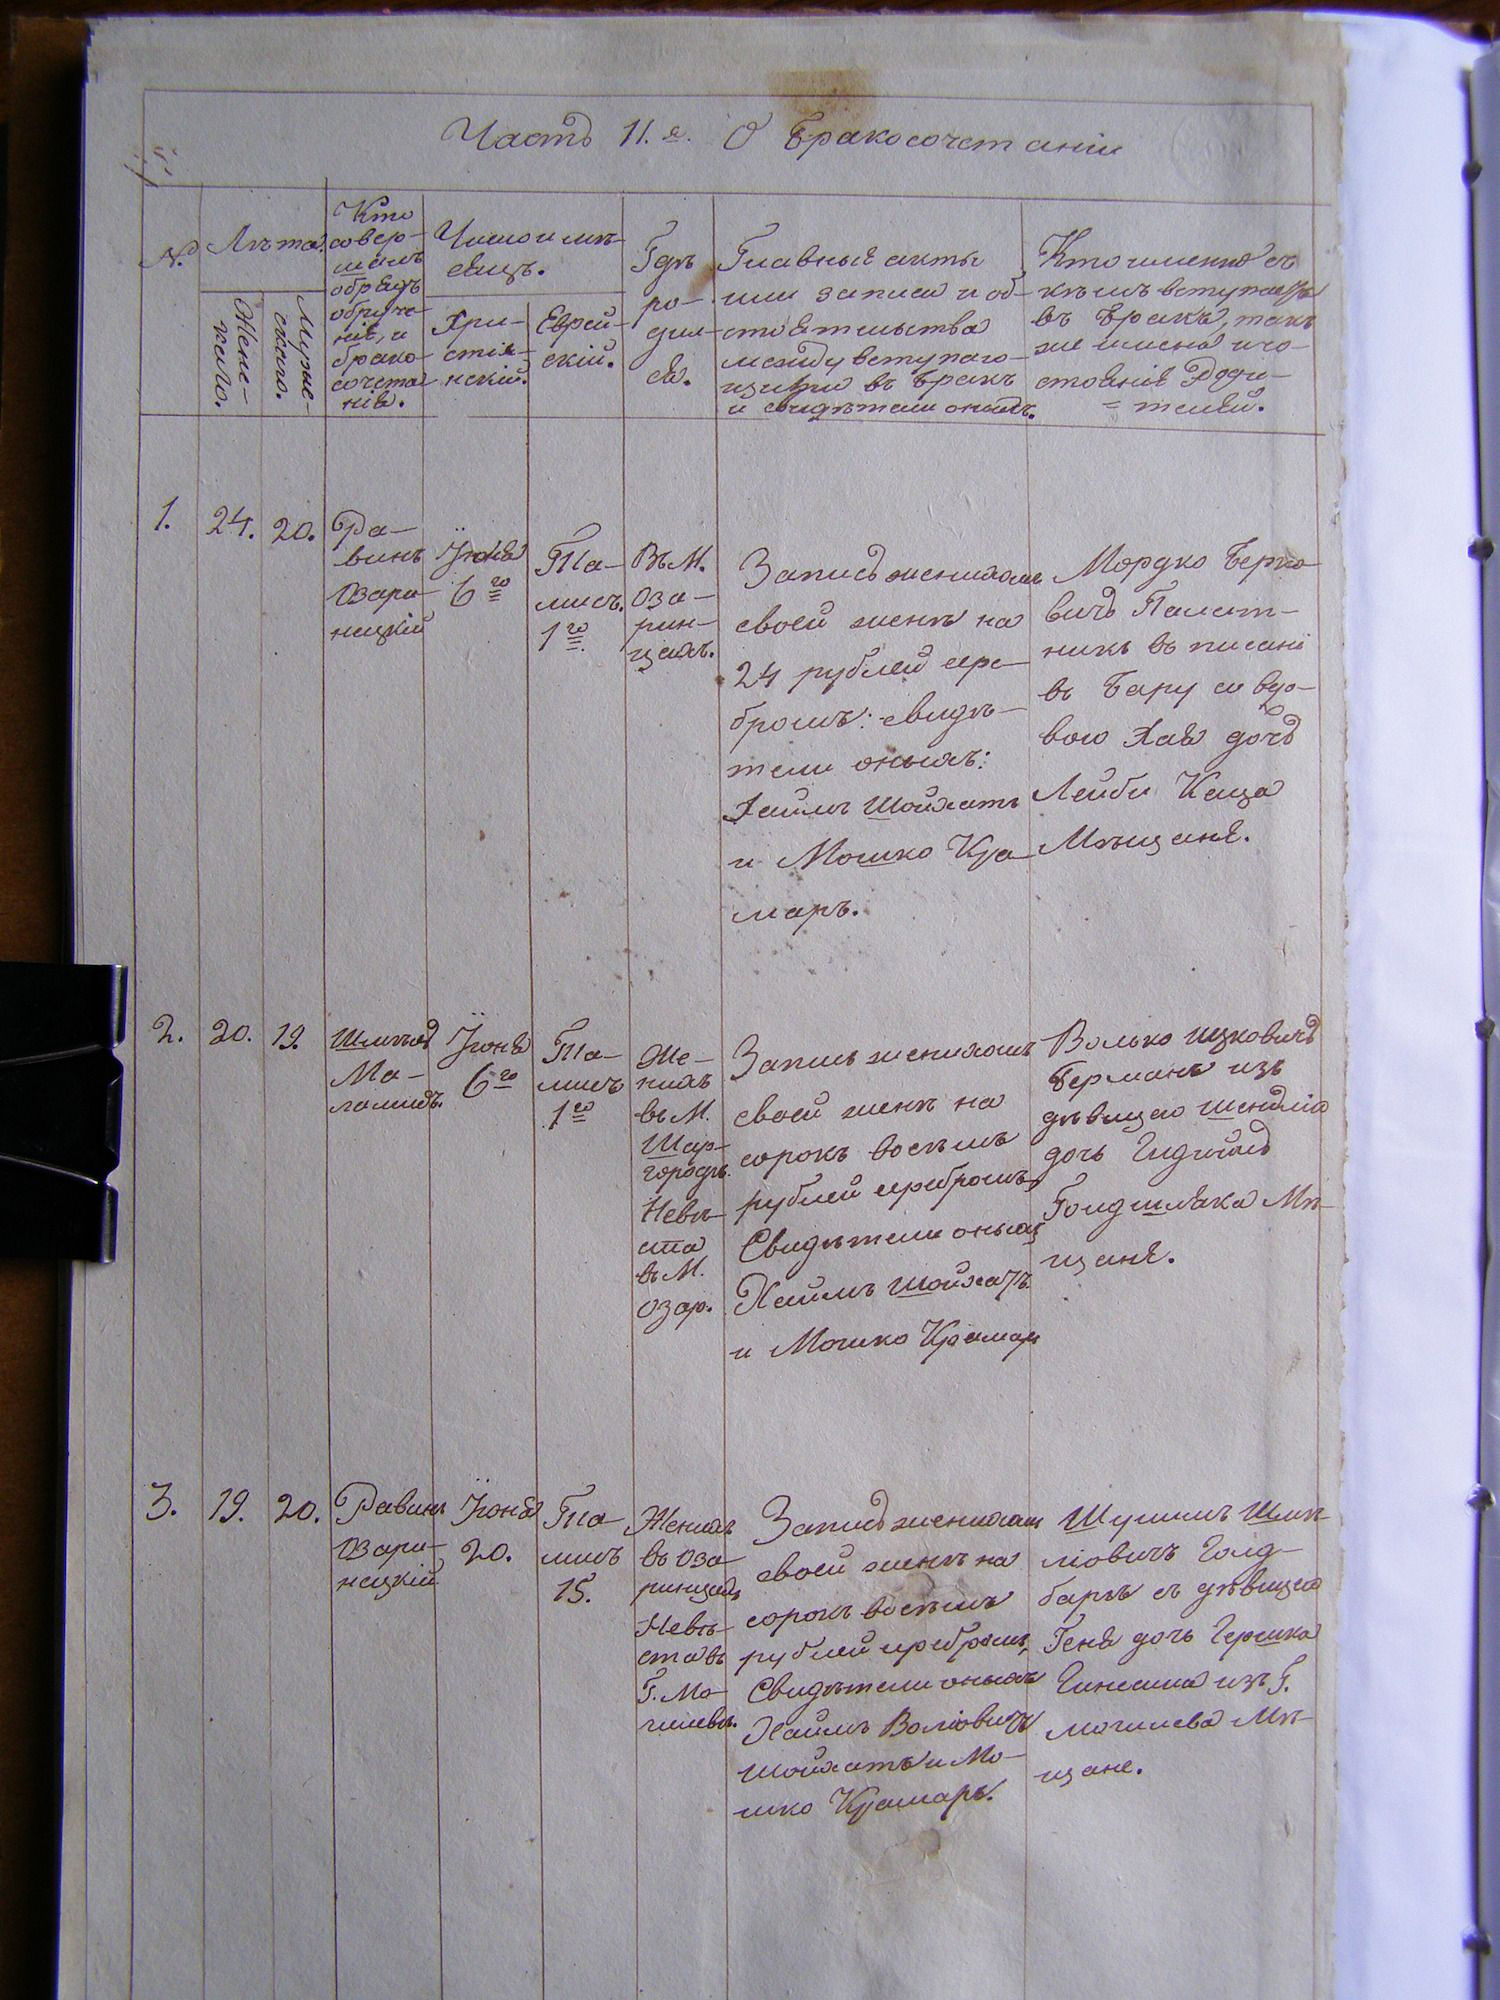 Часть 11.я. О Бракосочетаніи
№.
Лѣта.
Жене-
каго.
Мужес-
скаго.
Кто
совер-
шалъ
обрядъ
обруче-
нія, и
брако-
сочета
нія.
Число и мѣ-
сяцъ.
Хри-
стіа-
нскій.
Еврей-
скій.
Гдѣ
ро-
дил-
ся.
Главныя акты
или записи и об-
стоятельства
между вступаю-
щими въ бракъ
и свидѣтели оныхъ.
Кто именно съ
кѣмъ вступаетъ
въ бракъ, такъ
же имена и со-
стояніе Роди-
= телей.
1.
24.
20.
Ра-
винъ
Озари-
нецкій
Іюня
6го
Та-
мисъ.
1го
Въ М.
Оза-
рин-
цахъ.
Запись женихомъ
своей женѣ на
24 рублей сере-
бромъ: свидѣ-
тели оныхъ:
Хаимъ Шойхатъ
и Мошко Кра-
маръ.
Мордко Берко-
вичъ
въ Бару со вдо-
вою Хая дочь
Лейби Каца
Мѣщаня.
2.
20.
19.
Меламедъ.
Іюня
6го
Та-
мисъ
1го
Же-
нихъ
въ М.
Шар-
городѣ.
Невѣ-
ста
въ М.
Озар.
Запись женихомъ
своей женѣ на
сорокъ восѣмъ
рублей серебромъ,
Свидѣтели оныхъ
Хаимъ Шойхатъ
и Мошко Крамаръ
Волько Ицковичъ
Германъ изъ
дѣвицею
дочь
Голдшляка Мѣ-
щаня.
3.
19.
20.
Равинъ
Озари-
нецкій
Іюня
20.
Та-
мисъ
15.
Женихъ
въ Оза-
ринцахъ
Невѣ-
ста въ
Г. Мо-
гилевѣ.
Запись женихомъ
своей женѣ на
сорокъ восѣмъ
рублей серебромъ,
Свидѣтели оныхъ
Хаимъ Волковичъ
Шойхатъ и Мо-
шко Крамаръ.
Шулимъ Шмѣ-
ліовичъ Голд-
барѣ съ дѣвицею
Геня дочь Гершка
изъ Г.
Могилева Мѣ-
щане.